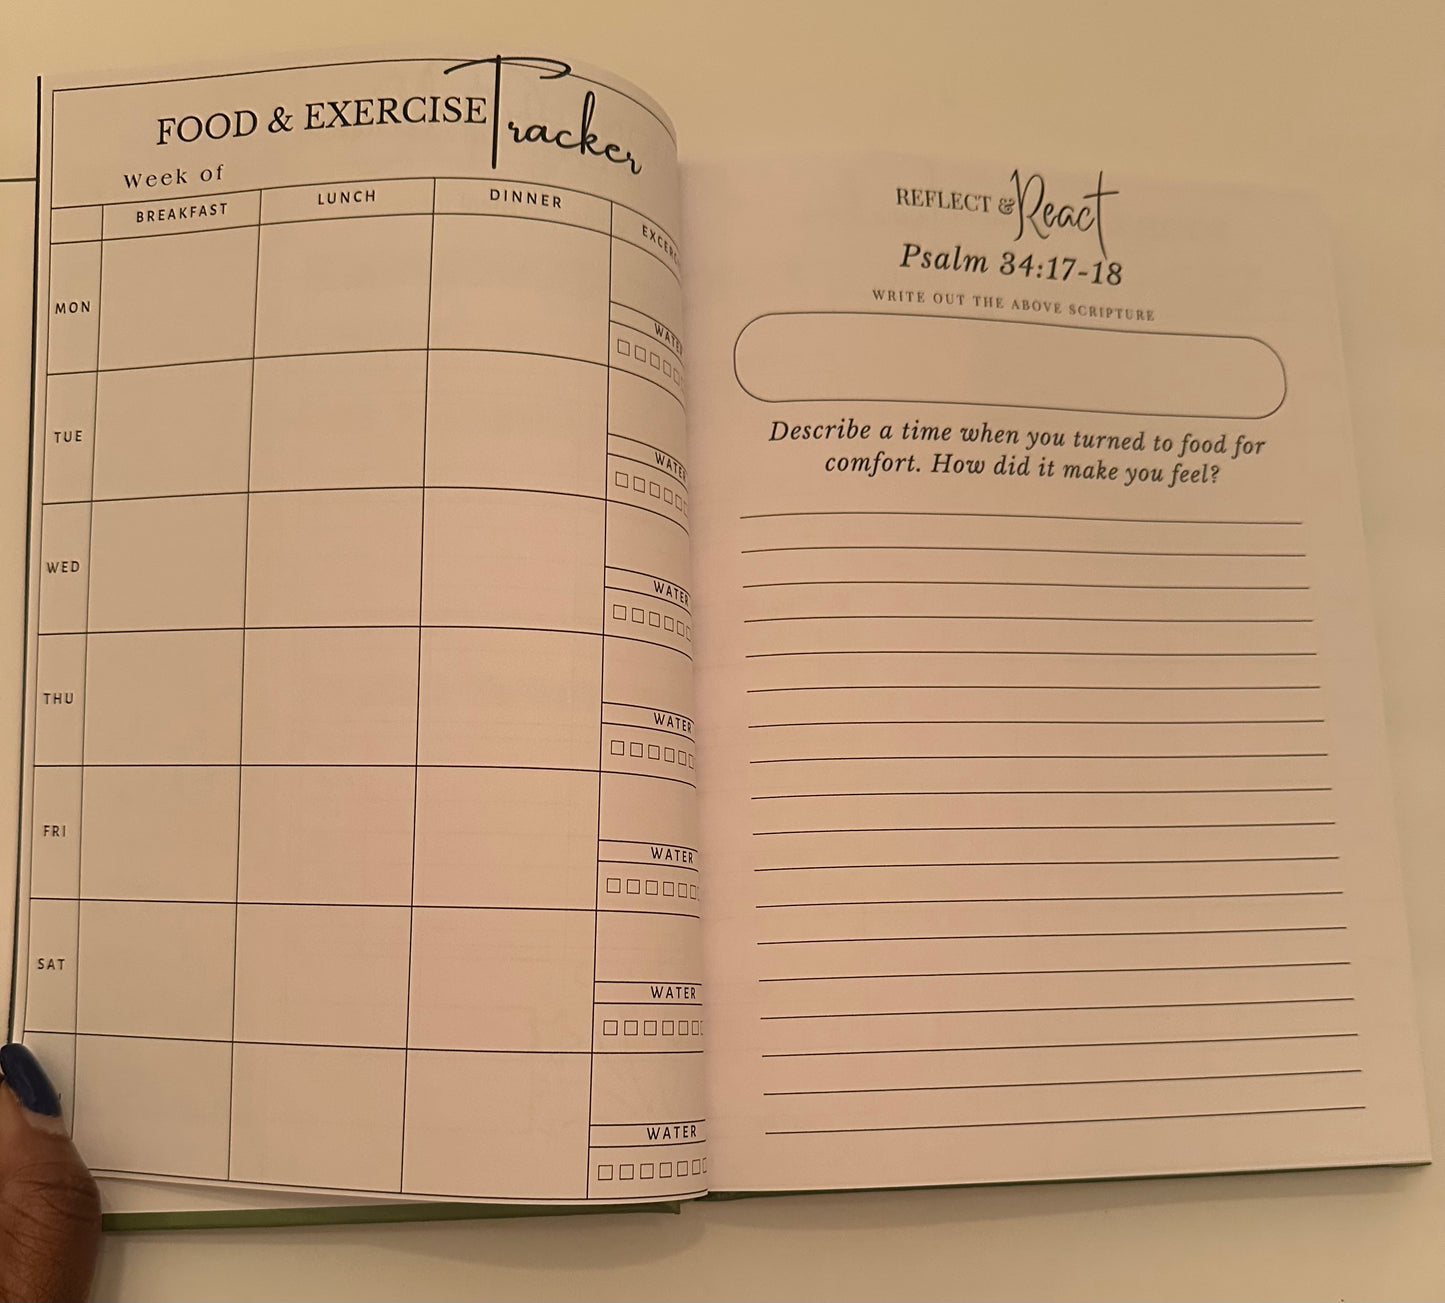 FOOD & EXERCISE Tracker
Week of
BREAKFAST LUNCH DINNER
MON
WATER
TUE
WATER
WED
WATER
THU
WATER
FRI
WATER
SAT
WATER
WATER
REFLECT & React
Psalm 34:17-18
WRITE OUT THE ABOVE SCRIPTURE
Describe a time when you turned to food for
comfort. How did it make you feel?